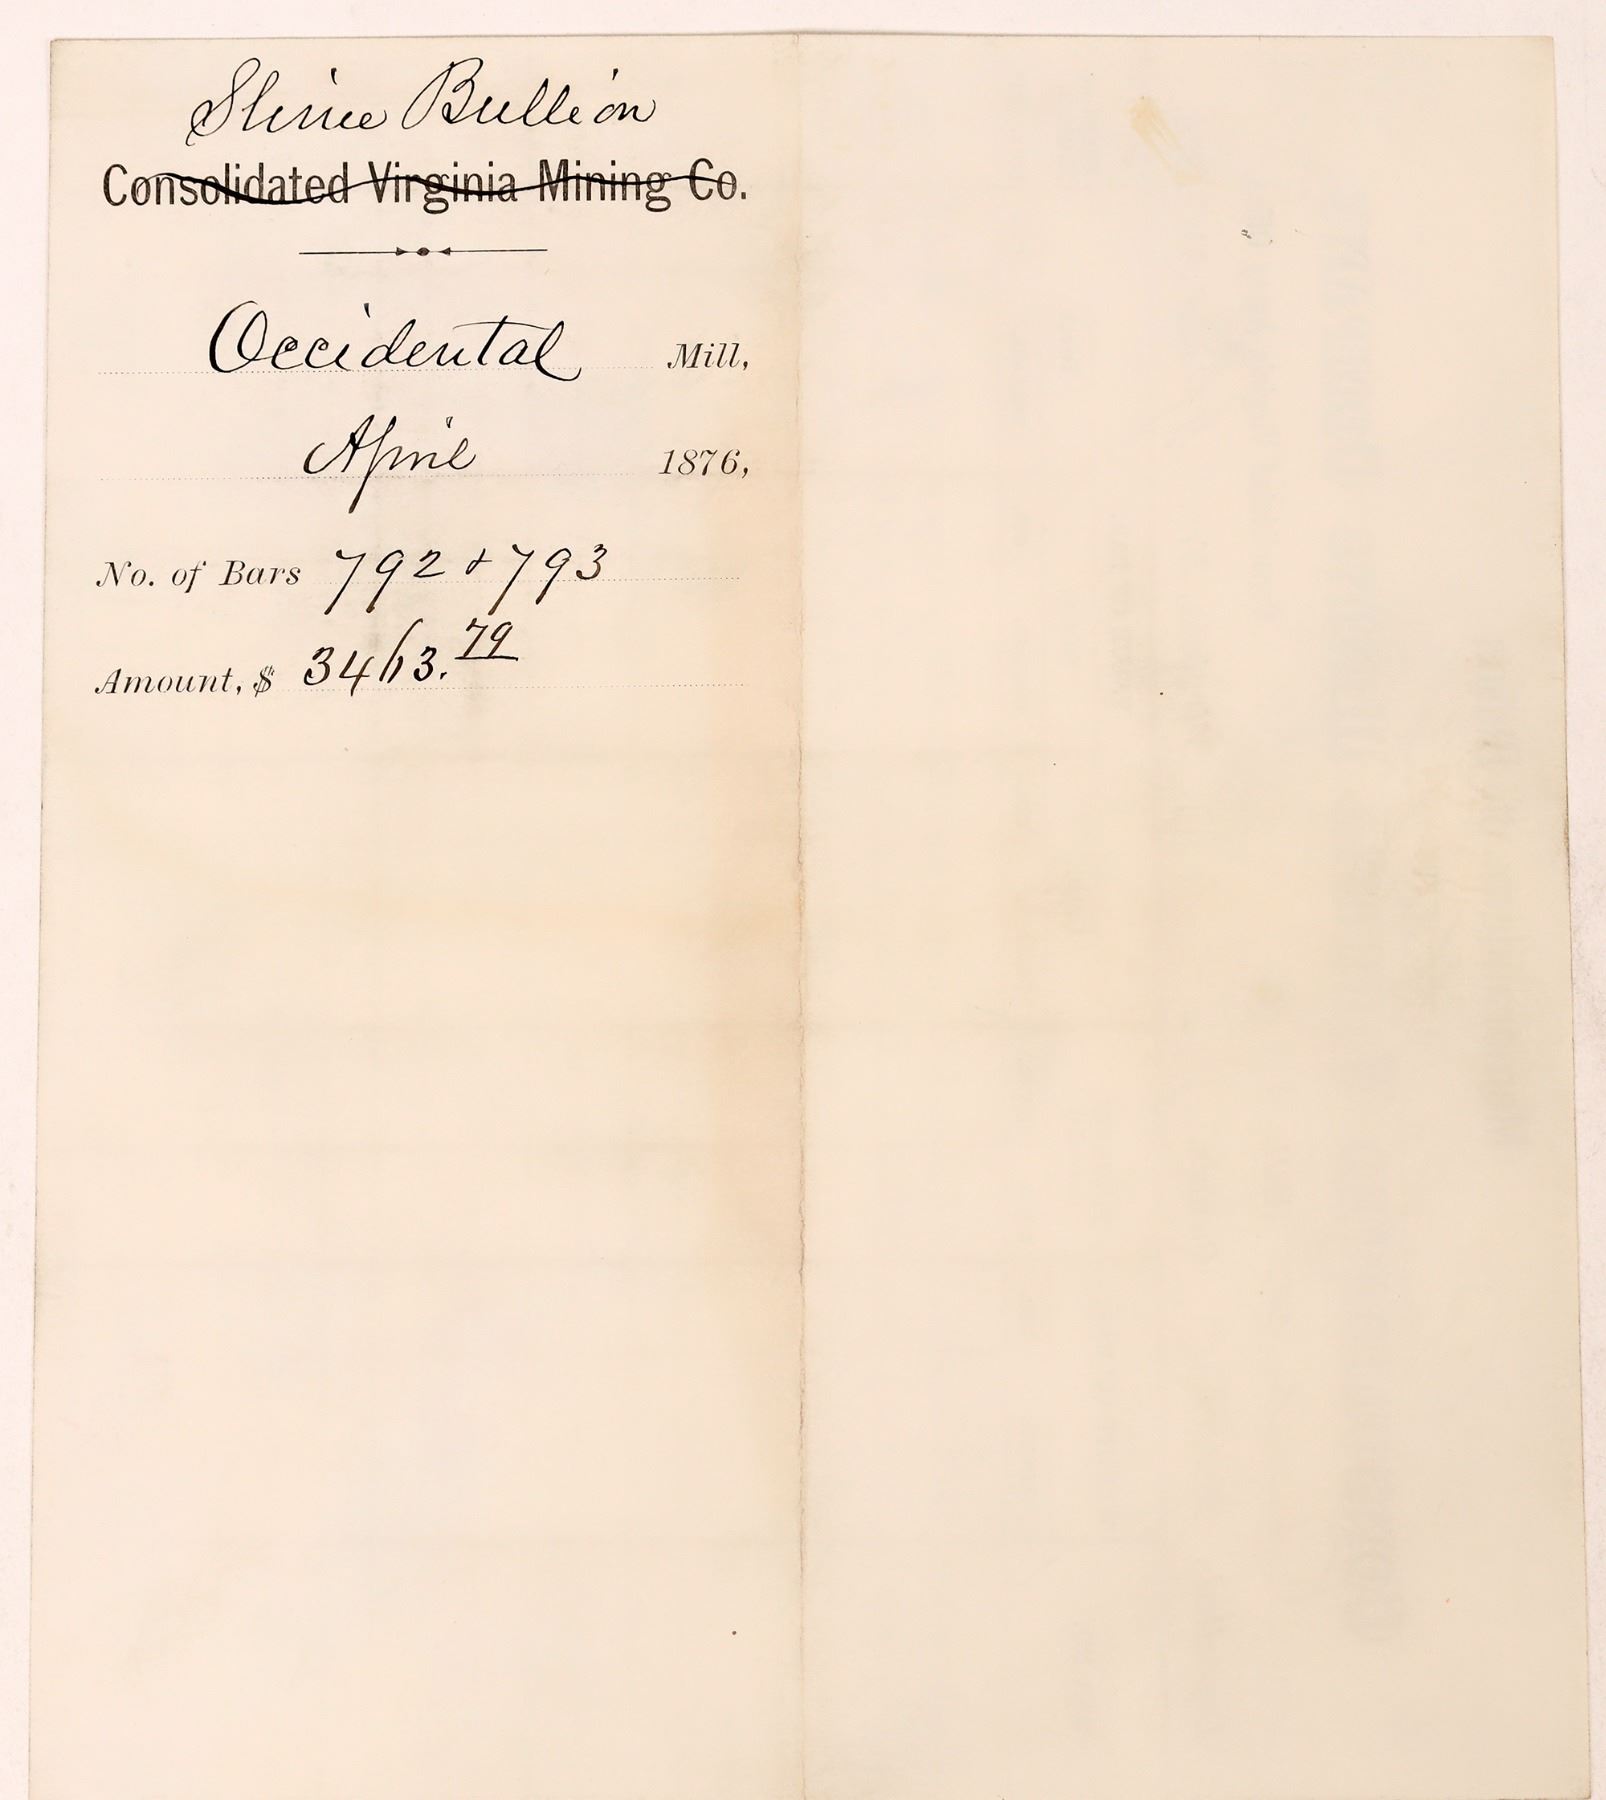 Slime Bullion
Consolidated Virginia Mining Co.
Occidental Mill,
April 1876,
No. of Bars 792 & 793
Amount, $ 3463.79